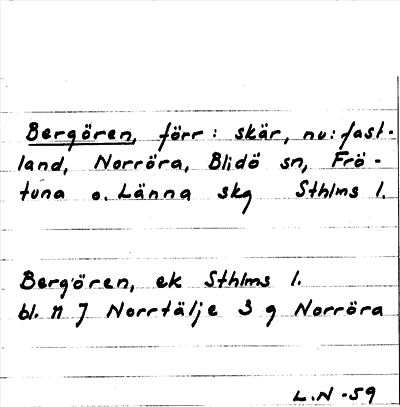 Bergören, förr: skär, nu: fast-
land, Norröra, Blidö sn, Frö-
tuna o. Länna skg Sthlms l.
Bergören, ek Sthlms l.
bl. n J Norrtälje 3 g Norröra
L.N -59